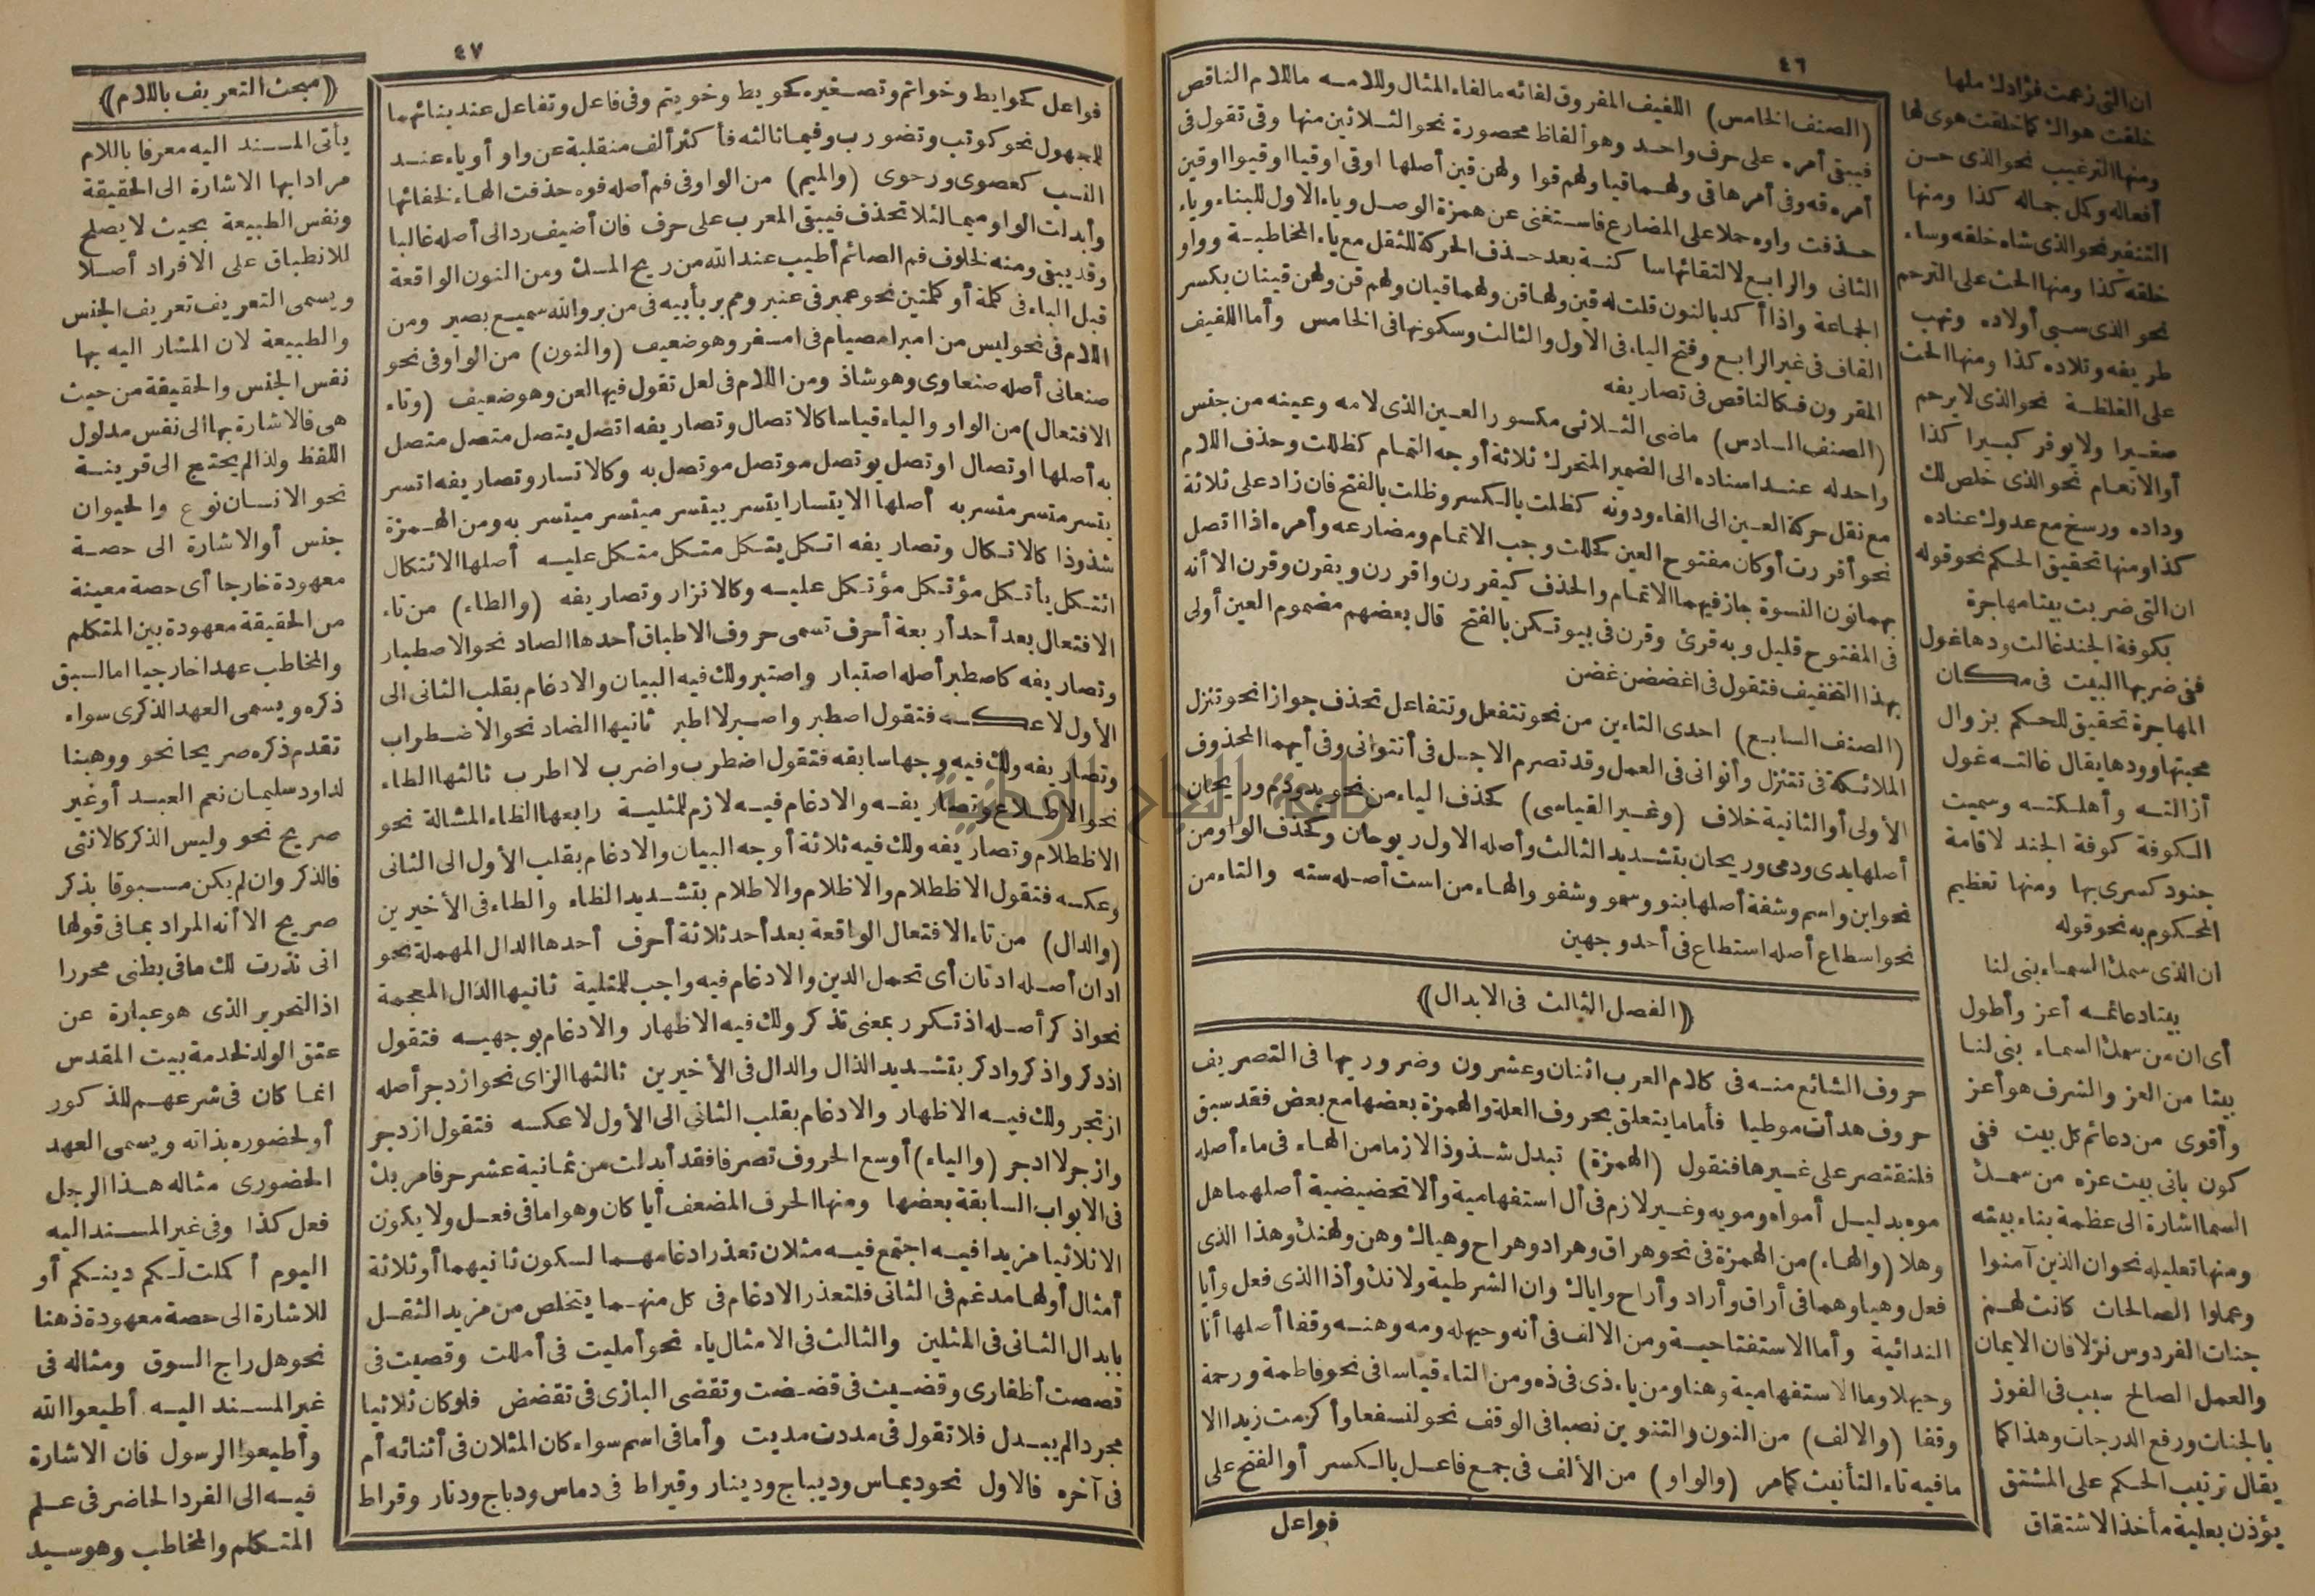 ٤٦
(الصنف الخامس) اللفيف المفروق لفائه ما لفاء المثال وللامه ما للام الناقص
فيبقى أمره على حرف واحد وهو ألفاظ محصورة نحو الثلاثين منها وقى تقول فى
أمره قه وفى أمرها قى ولهما قيا ولهم قوا ولهن قين أصلها اوقى اوقيا اوقيوا اوقين
حذفت واوه حملا على المضارع فاستغنى عن همزة الوصل وياء الاول للبناء وياء
الثانى والرابع لالتقائها ساكنة بعد حذف الحركة للثقل مع ياء المخاطبة وواو
الجماعة واذا أكد بالنون قلت له قين ولها قن ولهما قيان ولهم قن ولهن قينان بكسر
القاف فى غير الرابع وفتح الياء فى الأول والثالث وسكونها فى الخامس وأما اللفيف
المقرون فكالناقص فى تصاريفه
(الصنف السادس) ماضى الثلاثى مكسور العين الذى لامه وعينه من جنس
واحد له عند اسناده الى الضمير المتحرك ثلاثة أوجه التمام كظللت وحذف اللام
مع نقل حركة العين الى الفاء ودونه كظلت بالكسر وظلت بالفتح فان زاد على ثلاثة
نحو أقررت أو كان مفتوح العين كحللت وجب الاتمام ومضارعه وأمره اذا اتصل
بهما نون النسوة جاز فيهما الاتمام والحذف كيقررن واقررن ويقرن وقرن الا أنه
فى المفتوح قليل وبه قرئ وقرن فى بيوتكن بالفتح قال بعضهم مضموم العين أولى
بهذا التخفيف فتقول فى اغضضن غضن
(الصنف السابع) احدى التاءين من نحو تتفعل وتتفاعل تحذف جوازا نحو تنزل
الملائكة فى تتنزل وأنوانى فى العمل وقد تصرم الاجل فى أتتوانى وفى أيهما المحذوف
الأولى أو الثانية خلاف (وغير القياسى) كحذف الياء من نحو يد ودم وريحان
أصلها يدى ودمى وريحان بتشديد الثالث وأصله الاول ريوحان وكحذف الواو من
نحو ابن واسم وشفة أصلها بنو وسمو وشفو والهاء من است أصله سته والتاء من
نحو اسطاع أصله استطاع فى أحد وجهين
﴿الفصل الثالث فى الابدال﴾
حروف الشائع منه فى كلام العرب اثنان وعشرون وضروريها فى التصريف
حروف هدأت موطيا فأما ما يتعلق بحروف العلة والهمزة بعضها مع بعض فقد سبق
فلنقتصر على غيرها فنقول (الهمزة) تبدل شذوذا لازما من الهاء فى ماء أصله
موه بدليل أمواه ومويه وغير لازم فى أل استفهامية وألا تحضيضية أصلهما هل
وهلا (والهاء) من الهمزة فى نحو هراق وهراد وهراح وهياك وهن ولهنك وهذا الذى
فعل وهيا وهما فى أراق وأراد وأراح واياك وان الشرطية ولانك وأذا الذى فعل وأيا
الندائية وأما الاستفتاحية ومن الالف فى أنه وحيهله ومه وهنه وقفا أصلها أنا
وحيهلا وما الاستفهامية وهنا ومن ياء ذى فى ذه ومن التاء قياسا فى نحو فاطمة ورحمة
وقفا (والالف) من النون والتنوين نصبا فى الوقف نحو لنسفعا وأكرمت زيدا الا
ما فيه تاء التأنيث كما مر (والواو) من الألف فى جمع فاعل بالكسر أو الفتح على
فواعل
ان التى زعمت فؤادك ملها
خلقت هواك كما خلقت هوى لها
ومنها الترغيب نحو الذى حسن
أفعاله وكمل جماله كذا ومنها
التنفير نحو الذى شاه خلقه وساء
خلقه كذا ومنها الحث على الترحم
نحو الذى سبى أولاده ونهب
طريفه وتلاده كذا ومنها الحث
على الغلظة نحو الذى لا يرحم
صغيرا ولا يوقر كبيرا كذا
أو الانعام نحو الذى خلص لك
وداده ورسخ مع عدوك عناده
كذا ومنها تحقيق الحكم نحو قوله
ان التى ضربت بيتا مهاجرة
بكوفة الجند غالت ودها غول
ففى ضربها البيت فى مكان
المهاجرة تحقيق للحكم بزوال
محبتها وودها يقال غالته غول
أزالته وأهلكته وسميت
الكوفة كوفة الجند لاقامة
جنود كسرى بها ومنها تعظيم
المحكوم به نحو قوله
ان الذى سمك السماء بنى لنا
بيتا دعائمه أعز وأطول
أى ان من سمك السماء بنى لنا
بيتا من العز والشرف هو أعز
وأقوى من دعائم كل بيت ففى
كون بانى بيت عزه من سمك
السما اشارة الى عظمة بناء بيته
ومنها تعليله نحو ان الذين آمنوا
وعملوا الصالحات كانت لهم
جنات الفردوس نزلا فان الايمان
والعمل الصالح سبب فى الفوز
بالجنات ورفع الدرجات وهذا كما
يقال ترتيب الحكم على المشتق
يؤذن بعلية مأخذ الاشتقاق
٤٧
فواعل كحوايط وخواتم وتصغيره كحويط وخويتم وفى فاعل وتفاعل عند بنائهما
للمجهول نحو كوتب وتضورب وفيما ثالثه فأكثر ألف منقلبة عن واو أو ياء عند
النسب كعصوى ورحوى (والميم) من الواو فى فم أصله فوه حذفت الهاء لخفائها
وأبدلت الواو ميما لئلا تحذف فيبقى المعرب على حرف فان أضيف رد الى أصله غالبا
وقد يبقى ومنه لخلوف فم الصائم أطيب عند الله من ريح المسك ومن النون الواقعة
قبل الباء فى كلمة أو كلمتين نحو عمبر فى عنبر ومم بر بأبيه فى من بر والله سميع بصير ومن
اللام فى نحو ليس من امبر امصيام فى امسفر وهو ضعيف (والنون) من الواو فى نحو
صنعانى أصله صنعاوى وهو شاذ ومن اللام فى لعل تقول فيها لعن وهو ضعيف (وتاء
الافتعال) من الواو والياء قياسا كالاتصال وتصاريفه اتصل يتصل متصل متصل
به أصلها اوتصال اوتصل يوتصل موتصل موتصل به وكالاتسار وتصاريفه اتسر
يتسر متسر متسر به أصلها الايتسار ايتسر ييتسر ميتسر ميتسر به ومن الهمزة
شذوذا كالاتكال وتصاريفه اتكل يتكل متكل متكل عليه أصلها الائتكال
ائتكل يأتكل مؤتكل مؤتكل عليه وكالاتزار وتصاريفه (والطاء) من تاء
الافتعال بعد أحد أربعة أحرف تسمى حروف الاطباق أحدها الصاد نحو الاصطبار
وتصاريفه كاصطبر أصله اصتبار واصتبر ولك فيه البيان والادغام بقلب الثانى الى
الأول لا عكسه فتقول اصطبر واصبر لا اطبر ثانيها الضاد نحو الاضطراب
وتصاريفه ولك فيه وجها سابقه فتقول اضطرب واضرب لا اطرب ثالثها الطاء
نحو الاطلاع وتصاريفه والادغام فيه لازم للمثلية رابعها الظاء المشالة نحو
الاظطلام وتصاريفه ولك فيه ثلاثة أوجه البيان والادغام بقلب الأول الى الثانى
وعكسه فتقول الاظطلام والاظلام والاطلام بتشديد الظاء والطاء فى الأخيرين
(والدال) من تاء الافتعال الواقعة بعد أحد ثلاثة أحرف أحدها الدال المهملة نحو
ادان أصله ادتان أى تحمل الدين والادغام فيه واجب للمثلية ثانيها الذال المعجمة
نحو اذكر أصله اذتكر بمعنى تذكر ولك فيه الاظهار والادغام بوجهيه فتقول
اذدكر واذكر وادكر بتشديد الذال والدال فى الأخيرين ثالثها الزاى نحو ازدجر أصله
ازتجر ولك فيه الاظهار والادغام بقلب الثانى الى الأول لا عكسه فتقول ازدجر
وازجر لا ادجر (والياء) أوسع الحروف تصرفا فقد أبدلت من ثمانية عشر حرفا مر بك
فى الابواب السابقة بعضها ومنها الحرف المضعف أيا كان وهو اما فى فعل ولا يكون
الا ثلاثيا مزيدا فيه اجتمع فيه مثلان تعذر ادغامهما لسكون ثانيهما أو ثلاثة
أمثال أولها مدغم فى الثانى فلتعذر الادغام فى كل منهما يتخلص من مزيد الثقل
بابدال الثانى فى المثلين والثالث فى الامثال ياء نحو أمليت فى أمللت وقصيت فى
قصصت أظفارى وقضيت فى قضضت وتقضى البازى فى تقضض فلو كان ثلاثيا
مجردا لم يبدل فلا تقول فى مددت مديت وأما فى اسم سواء كان المثلان فى أثنائه أم
فى آخره فالاول نحو ديماس وديباج ودينار وقيراط فى دماس ودباج ودنار وقراط
﴿مبحث التعريف باللام﴾
يأتى المسند اليه معرفا باللام
مرادا بها الاشارة الى الحقيقة
ونفس الطبيعة بحيث لا يصلح
للانطباق على الافراد أصلا
ويسمى التعريف تعريف الجنس
والطبيعة لان المشار اليه بها
نفس الجنس والحقيقة من حيث
هى فالاشارة بها الى نفس مدلول
اللفظ ولذا لم يحتج الى قرينة
نحو الانسان نوع والحيوان
جنس أو الاشارة الى حصة
معهودة خارجا أى حصة معينة
من الحقيقة معهودة بين المتكلم
والمخاطب عهدا خارجيا اما لسبق
ذكره ويسمى العهد الذكرى سواء
تقدم ذكره صريحا نحو ووهبنا
لداود سليمان نعم العبد أو غير
صريح نحو وليس الذكر كالانثى
فالذكر وان لم يكن مسبوقا بذكر
صريح الا أنه المراد بما فى قولها
انى نذرت لك ما فى بطنى محررا
اذ التحرير الذى هو عبارة عن
عتق الولد لخدمة بيت المقدس
انما كان فى شرعهم للذكور
أو لحضوره بذاته ويسمى العهد
الحضورى مثاله هذا الرجل
فعل كذا وفى غير المسند اليه
اليوم أكملت لكم دينكم أو
للاشارة الى حصة معهودة ذهنا
نحو هل راج السوق ومثاله فى
غير المسند اليه أطيعوا الله
وأطيعوا الرسول فان الاشارة
فيه الى الفرد الحاضر فى علم
المتكلم والمخاطب وهو سيد